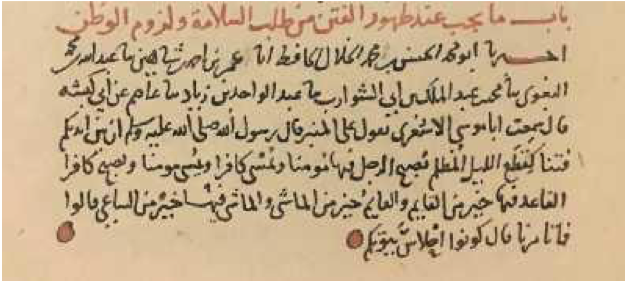 باب ما يجب عند ظهور الفتن من طلب السلامة ولزوم الوطن
اخبرنا ابو محمد الحسن بن محمد الخلال الحافظ انا عمر بن احمد بن شاهين نا عبد الله بن محمد
البغوي نا محمد بن عبد الملك بن ابي الشوارب نا عبد الواحد بن زياد نا عاصم عن ابي كبشة
قال سمعت ابا موسى الاشعري يقول على المنبر قال رسول الله صلى الله عليه وسلم ان بين ايديكم
فتنا كقطع الليل المظلم يصبح الرجل فيها مومنا ويمسي كافرا ويمسي مومنا ويصبح كافرا
القاعد فيها خير من القايم والقايم خير من الماشي والماشي فيها خير من الساعي قالوا
فما تامرنا قال كونوا احلاس بيوتكم